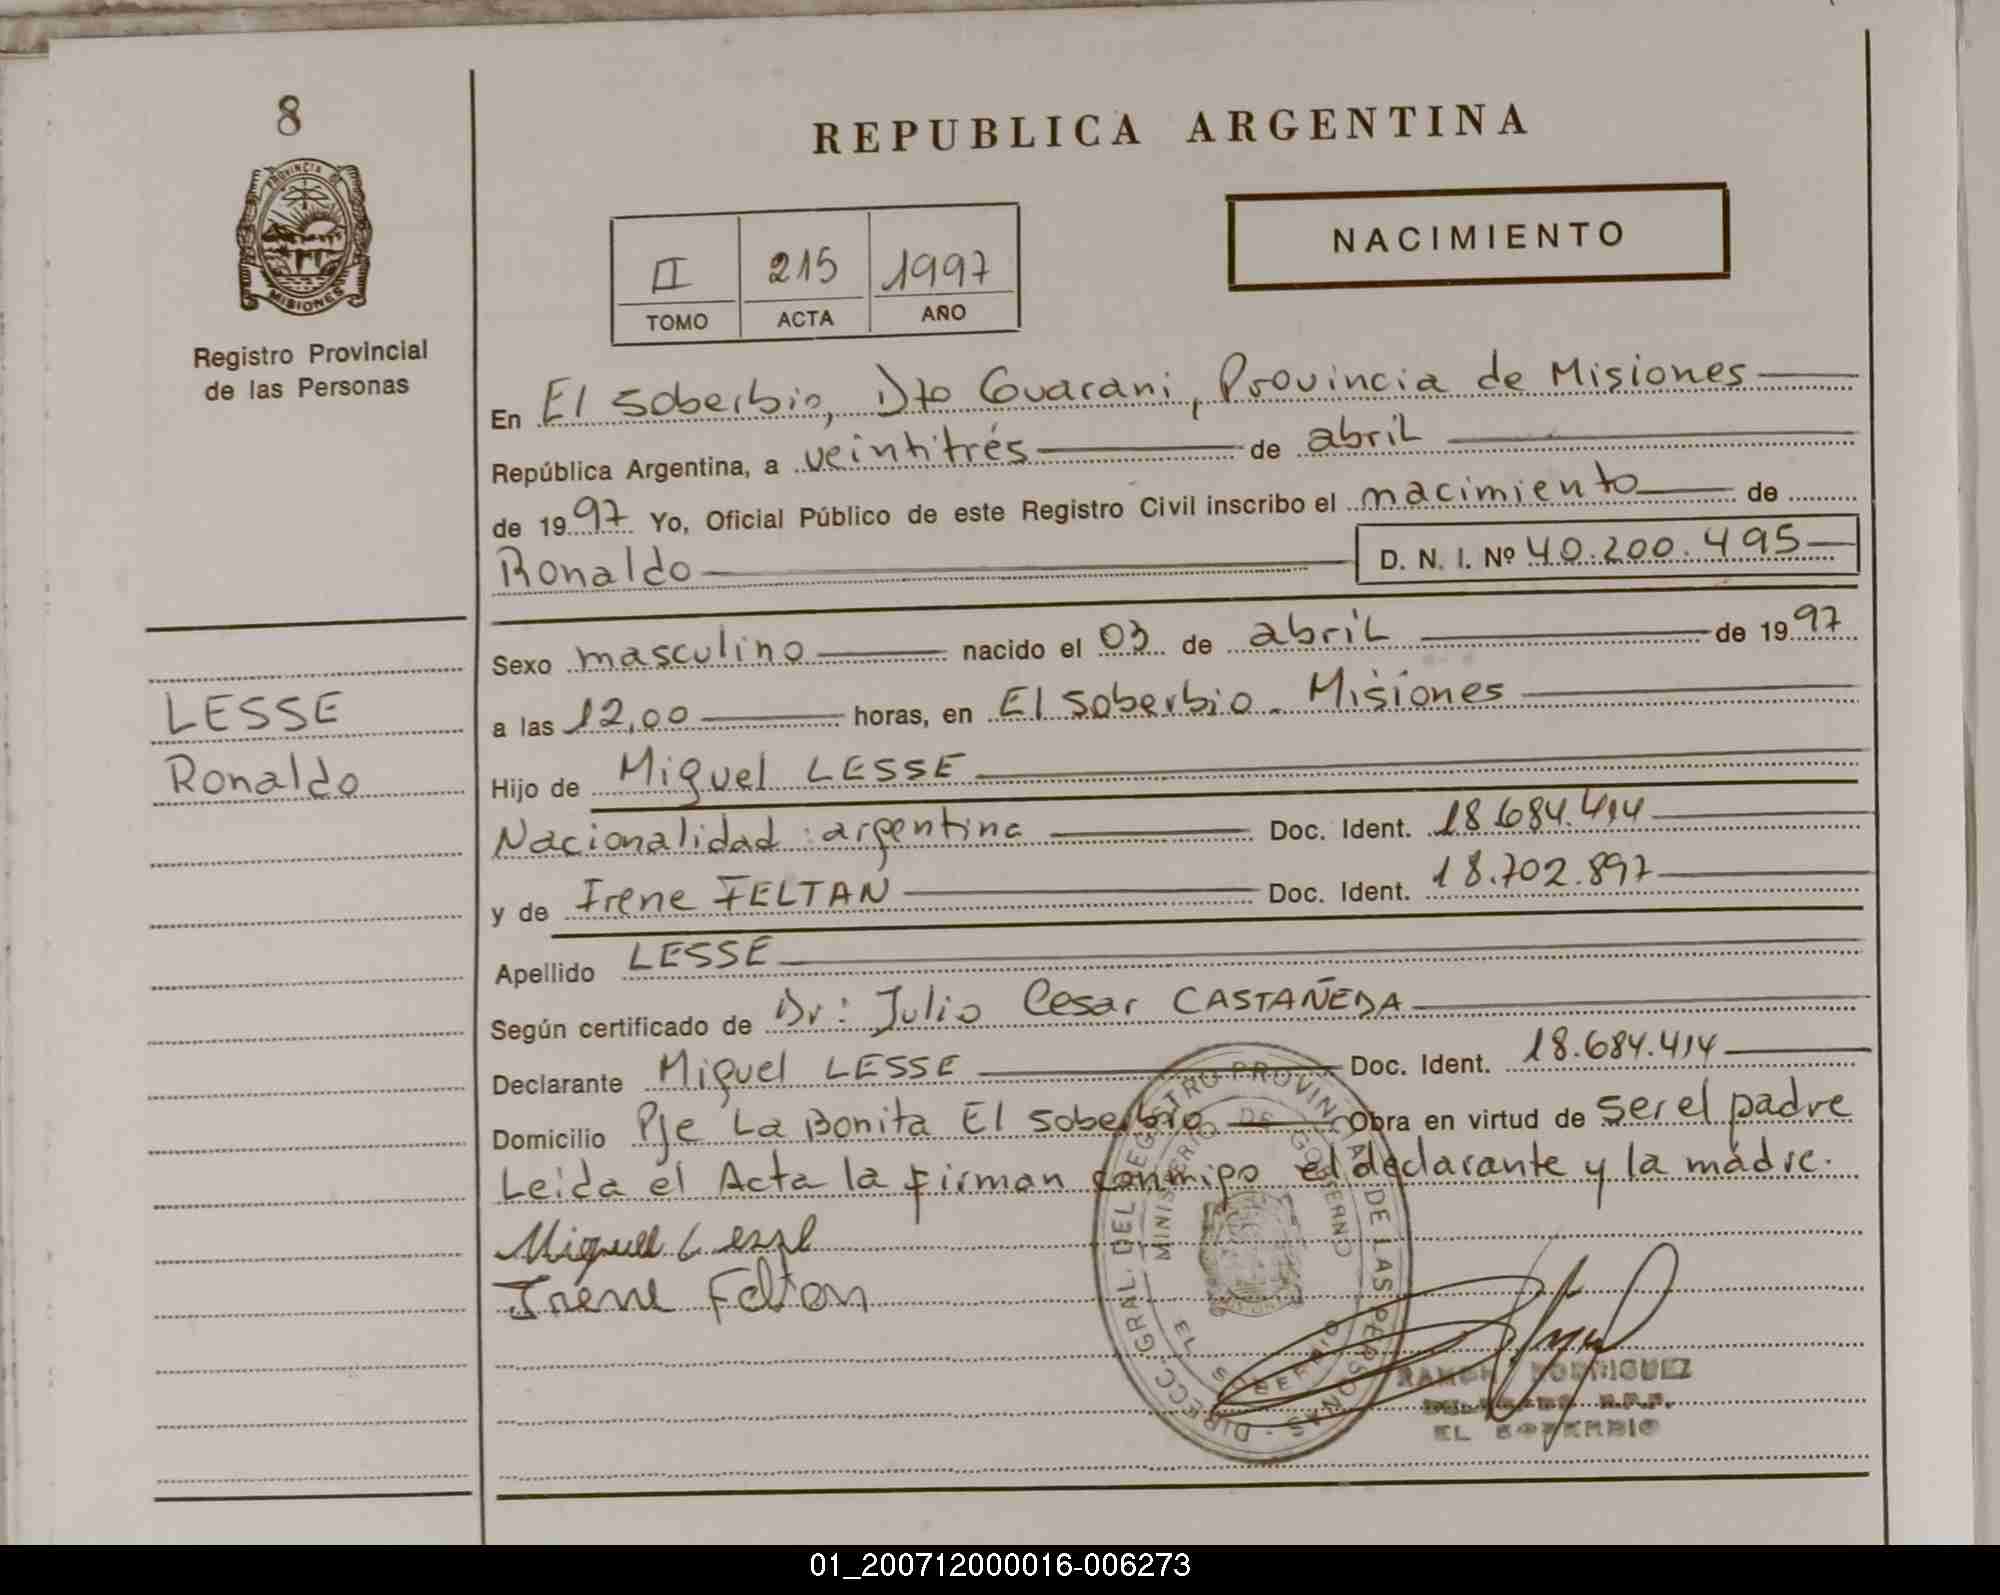 8
PROVINCIA DE
MISIONES
Registro Provincial
de las Personas
LESSE
Ronaldo
REPUBLICA ARGENTINA
NACIMIENTO
II 215 1997
TOMO ACTA AÑO
En El Soberbio, Dto Guarani, Provincia de Misiones
República Argentina, a veintitrés de abril
de 1997 Yo, Oficial Público de este Registro Civil inscribo el nacimiento de
Ronaldo D. N. I. Nº 40.200.495
Sexo masculino nacido el 03 de abril de 1997
a las 12,00 horas, en El Soberbio - Misiones
Hijo de Miguel LESSE
Nacionalidad: argentina Doc. Ident. 18.684.414
y de Irene FELTAN Doc. Ident. 18.702.897
Apellido LESSE
Según certificado de Dr: Julio Cesar CASTAÑEDA
Declarante Miguel LESSE Doc. Ident. 18.684.414
Domicilio Pje La Bonita El Soberbio Obra en virtud de ser el padre
Leida el Acta la firman conmigo el declarante y la madre.
Miguel Lesse
Irene Feltan
DIRECC. GRAL. DEL REGISTRO PROVINCIAL DE LAS PERSONAS
MINISTERIO DE GOBIERNO
EL SOBERBIO
RAMON RODRIGUEZ
R.P.P.
EL SOBERBIO
01_200712000016-006273